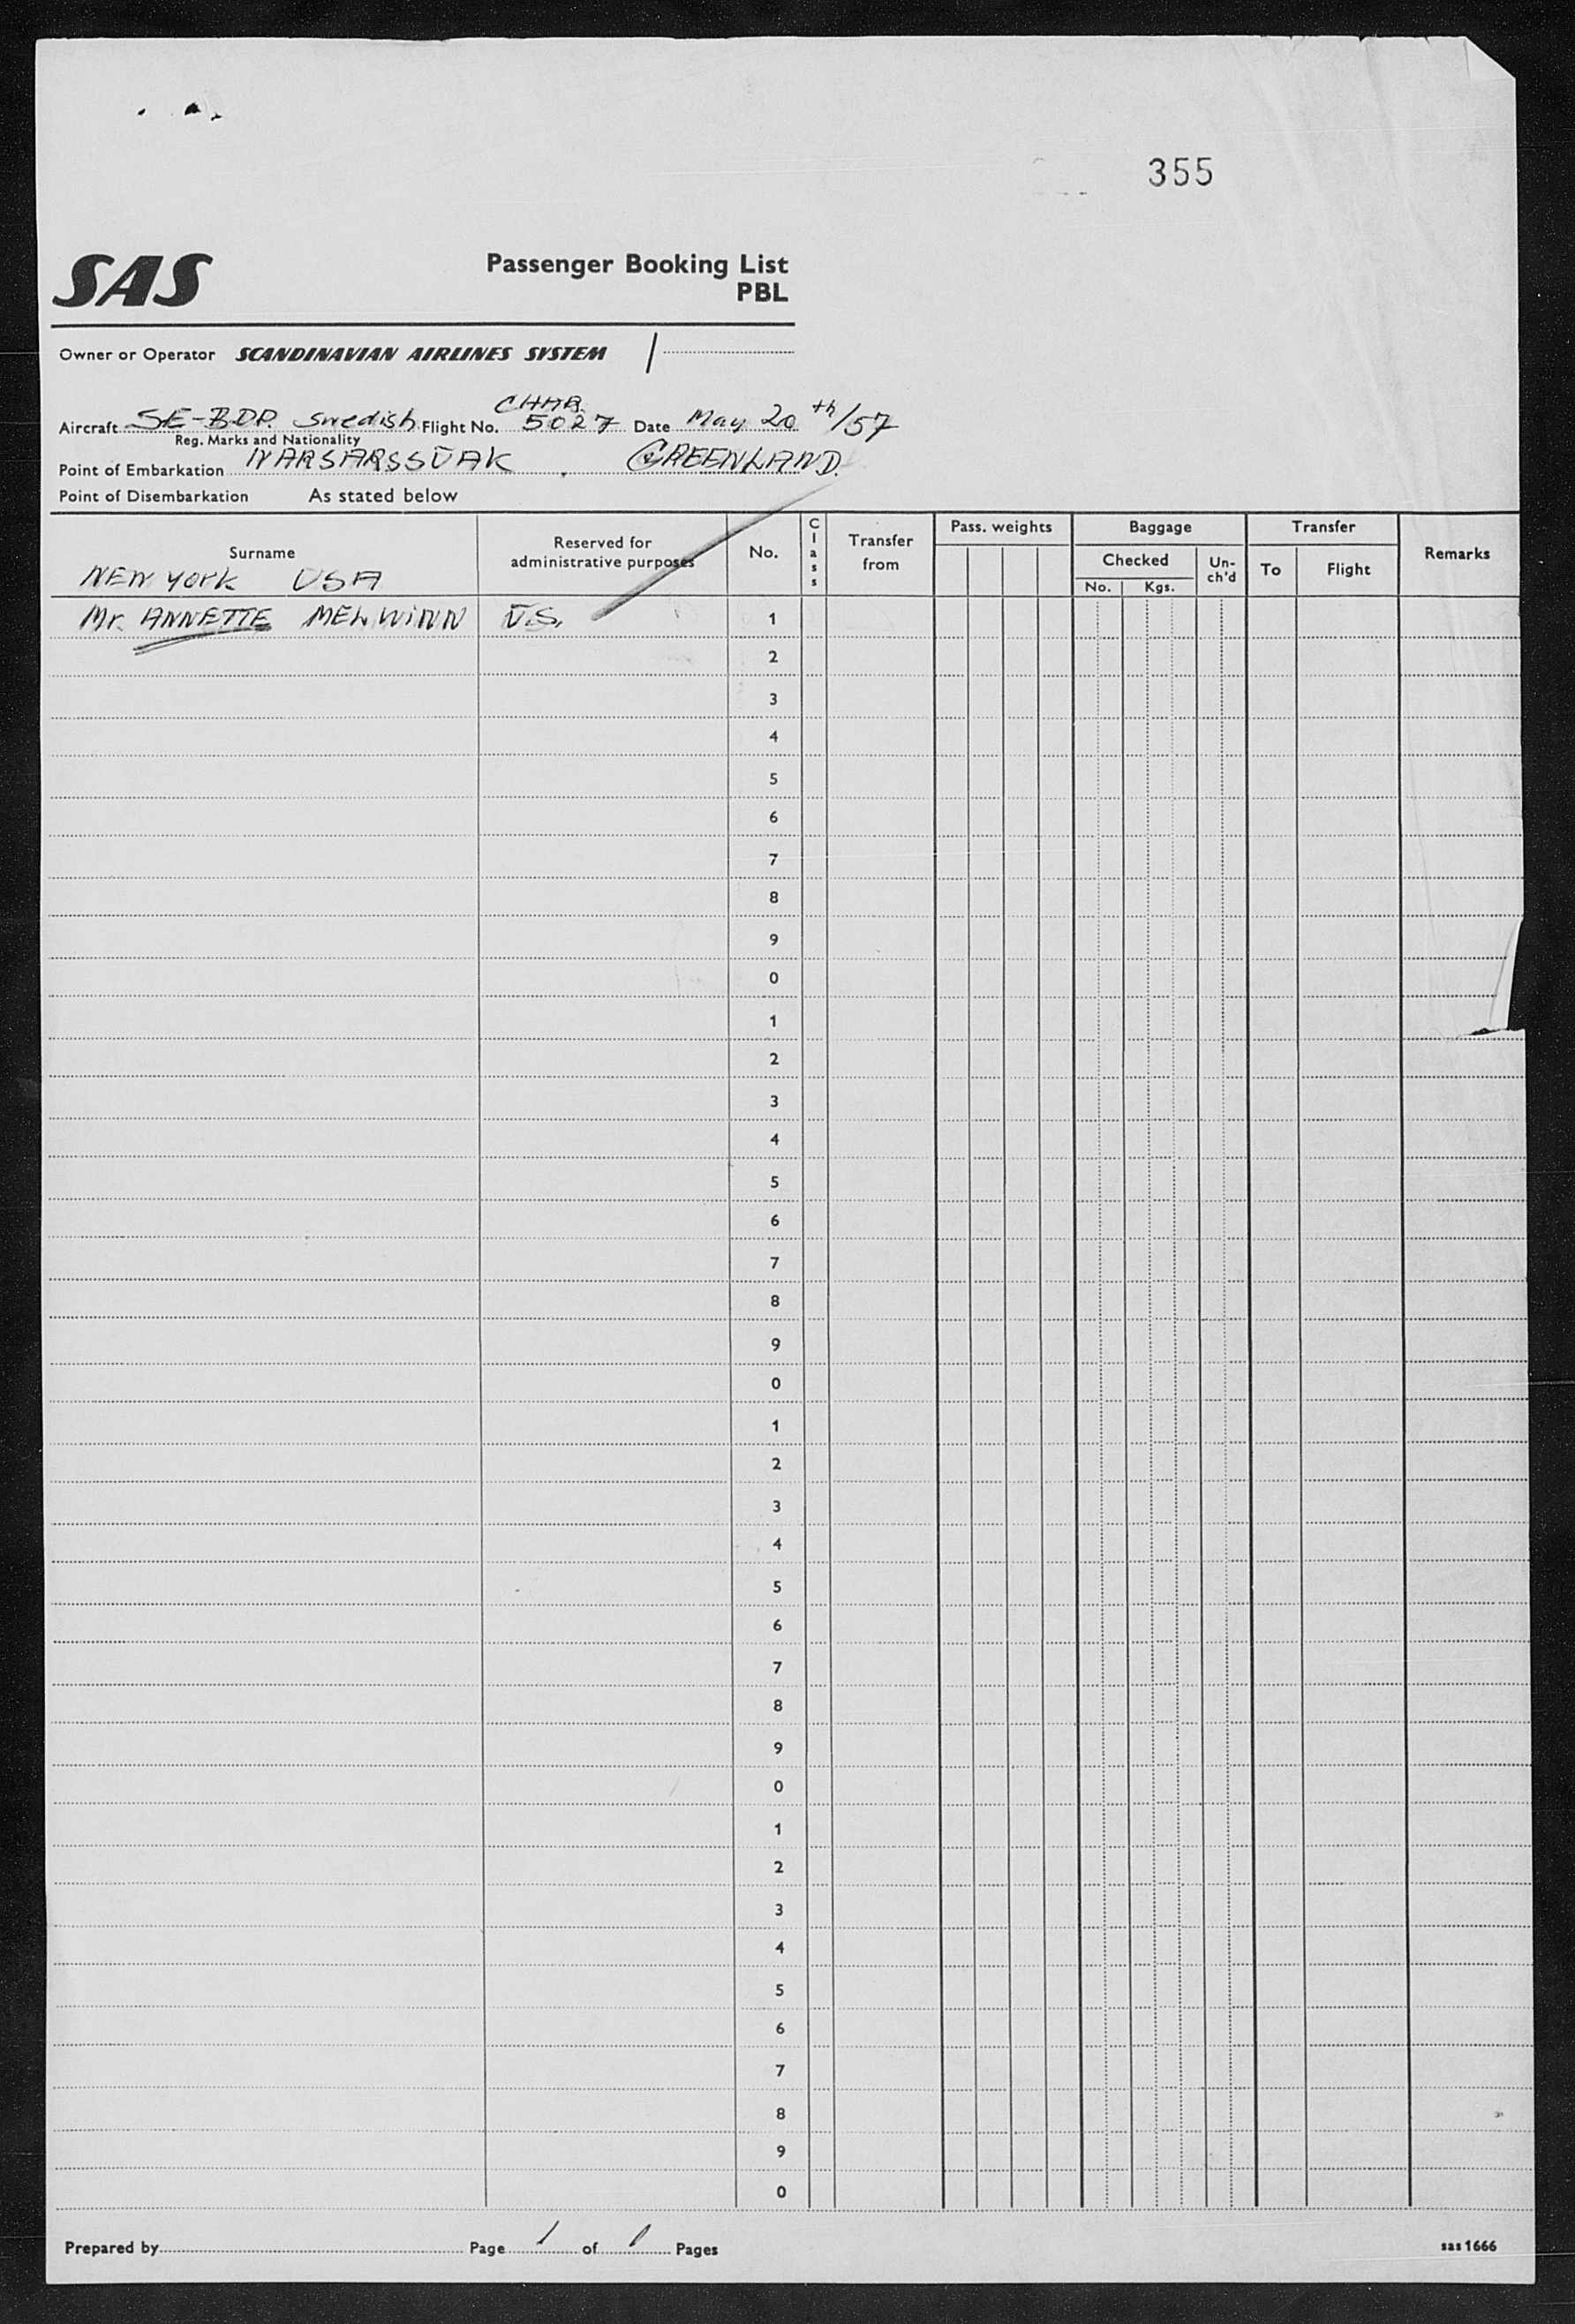 355
SAS
Passenger Booking List
PBL
Owner or Operator SCANDINAVIAN AIRLINES SYSTEM /
CHAR.
Aircraft SE-BDR. Swedish Flight No. 5027 Date May 20th/57
Reg. Marks and Nationality
Point of Embarkation NARSARSSUAK, GREENLAND.
Point of Disembarkation As stated below
Surname
Reserved for
administrative purposes
No.
Class
Transfer
from
Pass. weights
Baggage
Checked
No. Kgs.
Un-
ch'd
Transfer
To Flight
Remarks
NEW York USA
Mr. ANNETTE MELWINN U.S. 1
2
3
4
5
6
7
8
9
0
1
2
3
4
5
6
7
8
9
0
1
2
3
4
5
6
7
8
9
0
1
2
3
4
5
6
7
8
9
0
Prepared by Page 1 of 1 Pages
sas 1666